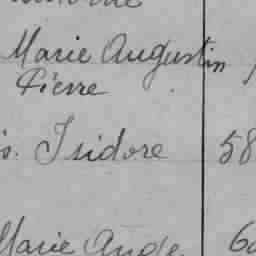 Marie Augustin
Pierre
s. Isidore 58
Marie Ange 6